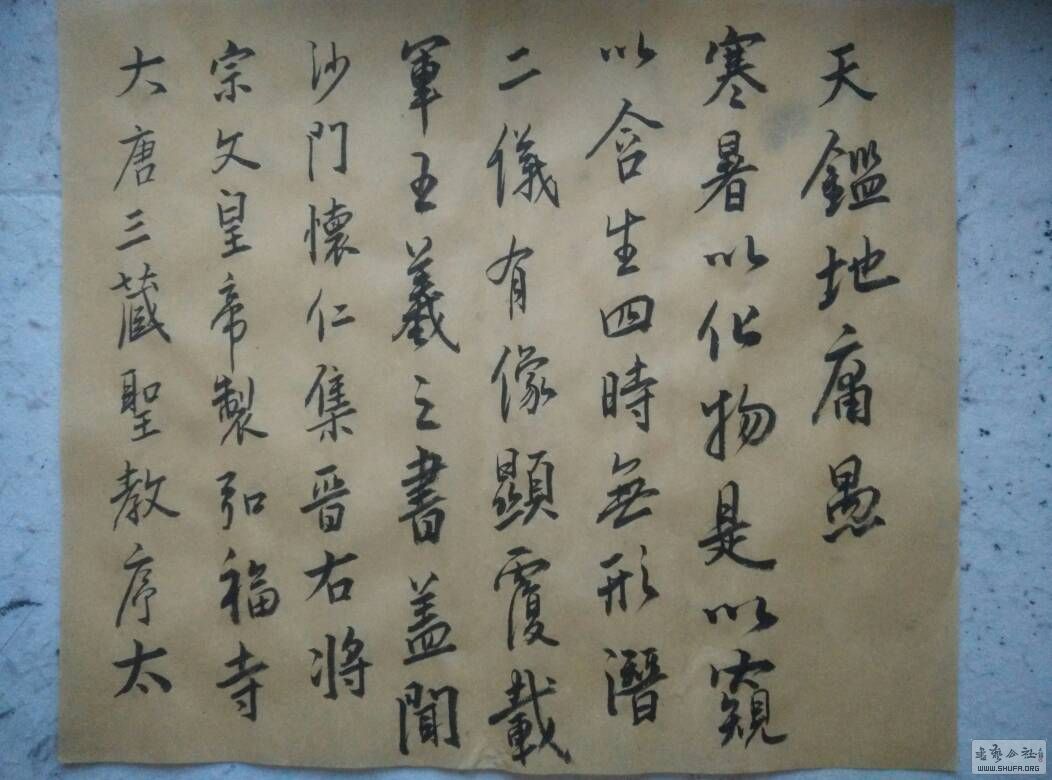 大唐三藏聖教序太
宗文皇帝製弘福寺
沙門懷仁集晋右将
軍王羲之書盖聞
二儀有像顯覆載
以含生四時無形潛
寒暑以化物是以窺
天鑑地庸愚
书艺公社
WWW.SHUFA.ORG